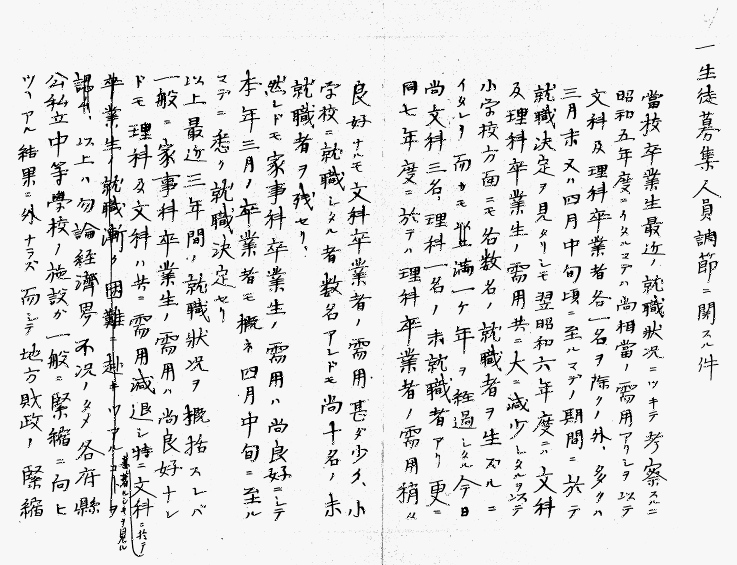 一生徒募集人員調節ニ関スル件
當校卒業生最近ノ就職状況ニツキテ考察スルニ
昭和五年度ニイタルマデハ尚相當ノ需用アリシヲ以テ
文科及理科卒業者各一名ヲ除クノ外、多クハ
三月末又ハ四月中旬頃ニ至ルマデノ期間ニ於テ
就職決定ヲ見タリシモ翌昭和六年度ニハ文科
及理科卒業生ノ需用共ニ大ニ減少シタルヲ以テ
小学校方面ニモ各数名ノ就職者ヲ生ズルニ
イタレリ而カモ満一ケ年ヲ経過シタル今日
尚文科三名、理科一名ノ未就職者アリ更ニ
同七年度ニ於テハ理科卒業者ノ需用稍々
良好ナルモ文科卒業者ノ需用甚ダ少ク、小
学校ニ就職シタル者数名アレドモ尚十名ノ未
就職者ヲ残セリ、
然レドモ家事科卒業生ノ需用ハ尚良好ニシテ
本年三月ノ卒業者モ概ネ四月中旬ニ至ル
マデニ悉ク就職決定セリ
以上最近三年間ノ就職状況ヲ概括スレバ
一般ニ家事科卒業生ノ需用ハ尚良好ナレ
ドモ理科及文科ハ共ニ需用減退シ特ニ文科
ニ於テ
著シキヲ見ル
卒業生ノ就職漸ク困難ニ赴キツアルコトヲ
認ム、以上ハ勿論経濟界不況ノタメ各府縣
公私立中等學校ノ施設ガ一般ニ緊縮ニ向ヒ
ツヽアル結果ニ外ナラズ而シテ地方財政ノ緊縮